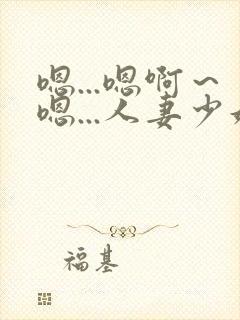 嗯...嗯啊～
嗯...人妻少
福基